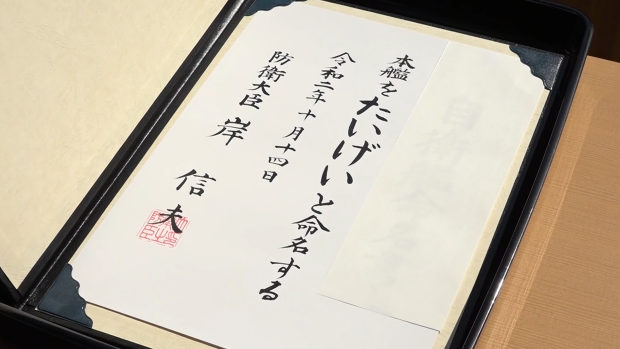 本艦をたいげいと命名する
令和二年十月十四日
防衛大臣 岸 信夫